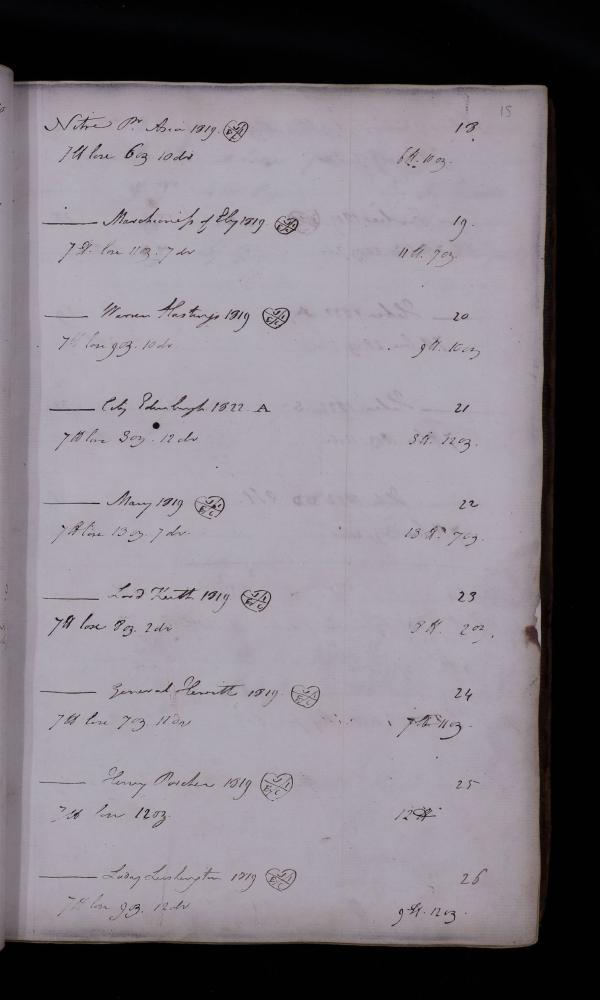 15
Nitre Pr Asia 1819. 18
7 lb lose 6 oz 10 dr 6 lb. 10 oz.
—— Marchioness of Ely 1819 19.
7 lb. lose 11 oz. 7 dr 11 lb. 7 oz.
—— Warren Hastings 1819 20
7 lb lose 9 oz. 10 dr 9 lb. 10 oz
—— City Edinburgh 1822 A 21
7 lb lose 3 oz. 12 dr 3 lb. 12 oz.
—— Mary 1819 22
7 lb lose 13 oz. 7 dr. 13 lb. 7 oz.
—— Lord Keith 1819 23
7 lb lose 8 oz. 2 dr 8 lb. 2 oz.
—— General Hewitt 1819. 24
7 lb lose 7 oz 11 dr 7 lb. 11 oz.
—— Henry Porcher 1819 25
7 lb lose 12 oz. 12 lb
—— Lady Lushington 1819 26
7 lb lose 9 oz. 12 dr 9 lb. 12 oz.